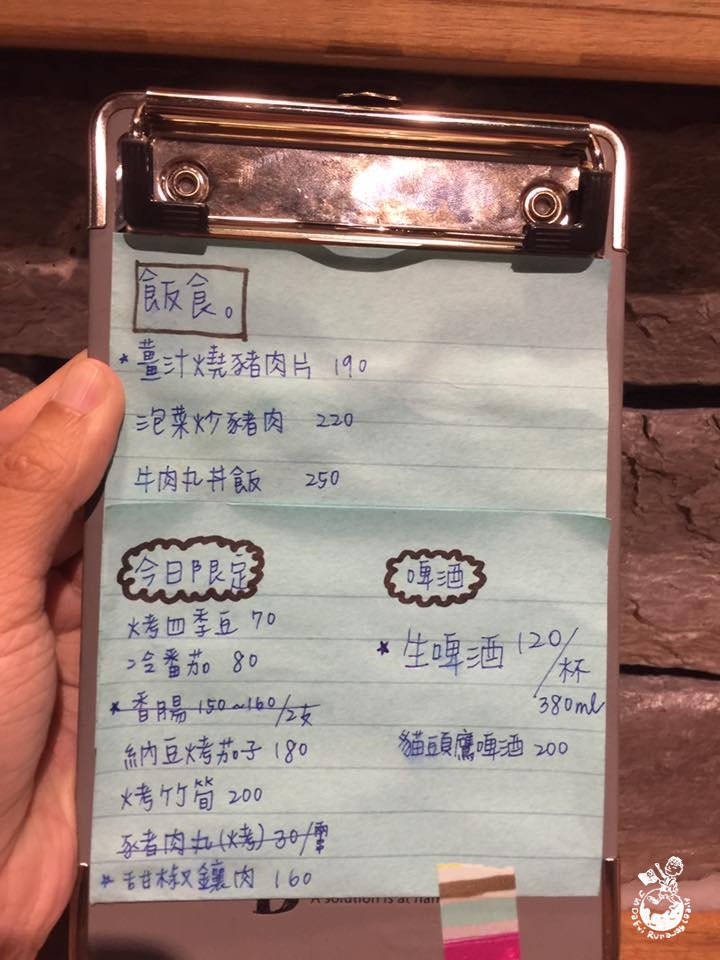 飯食。
★薑汁燒豬肉片 190
泡菜炒豬肉 220
牛肉丸丼飯 250
今日限定
烤四季豆 70
冷番茄 80
★香腸 150~160/2支
納豆烤茄子 180
烤竹筍 200
豬肉丸(烤) 30/串
★甜椒鑲肉 160
啤酒
★生啤酒 120/杯
380ml
貓頭鷹啤酒 200
A solution is at han
JinDaFui Runaway Diary